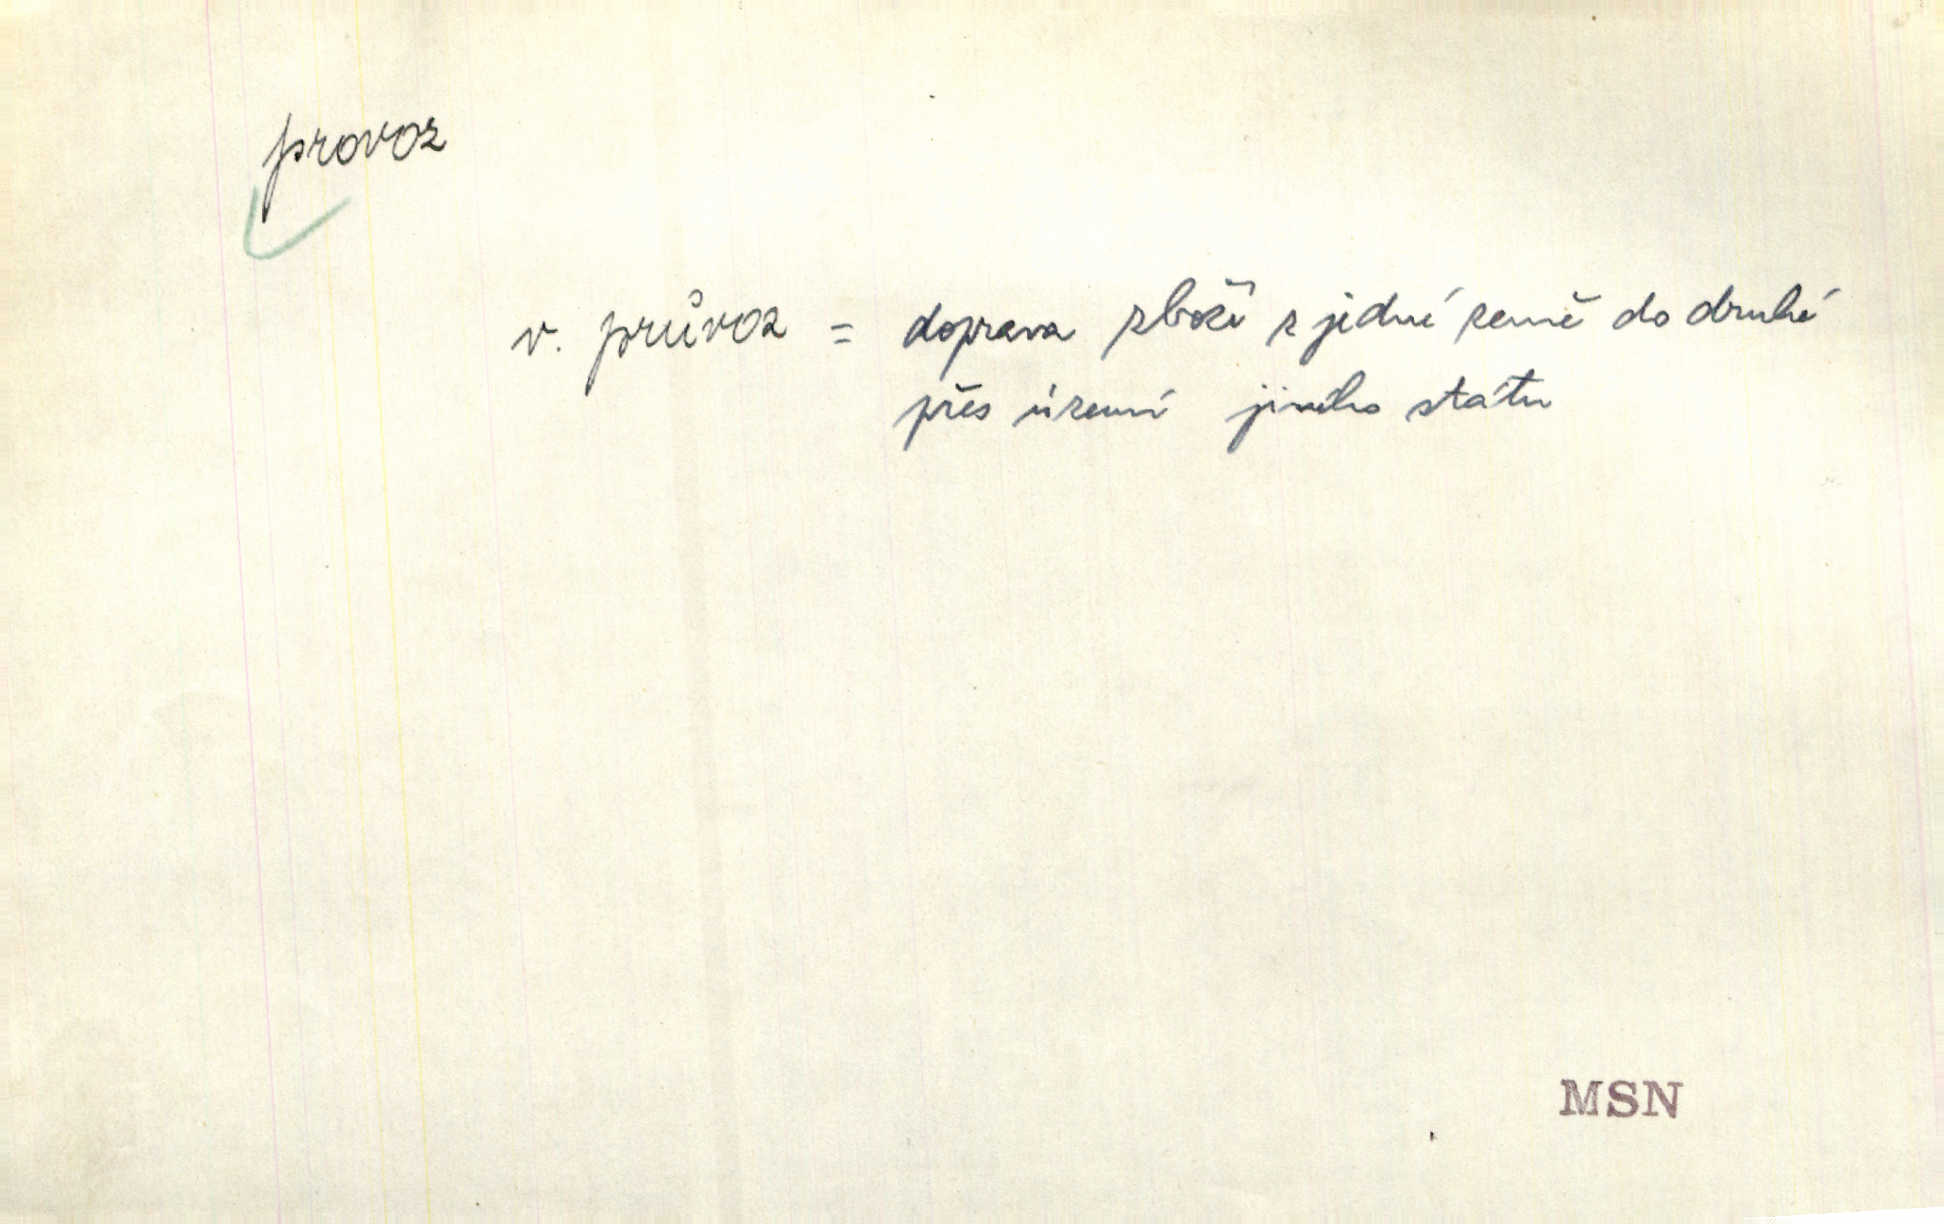 provoz
v. průvoz = doprava zboží z jedné země do druhé
přes území jiného státu
MSN